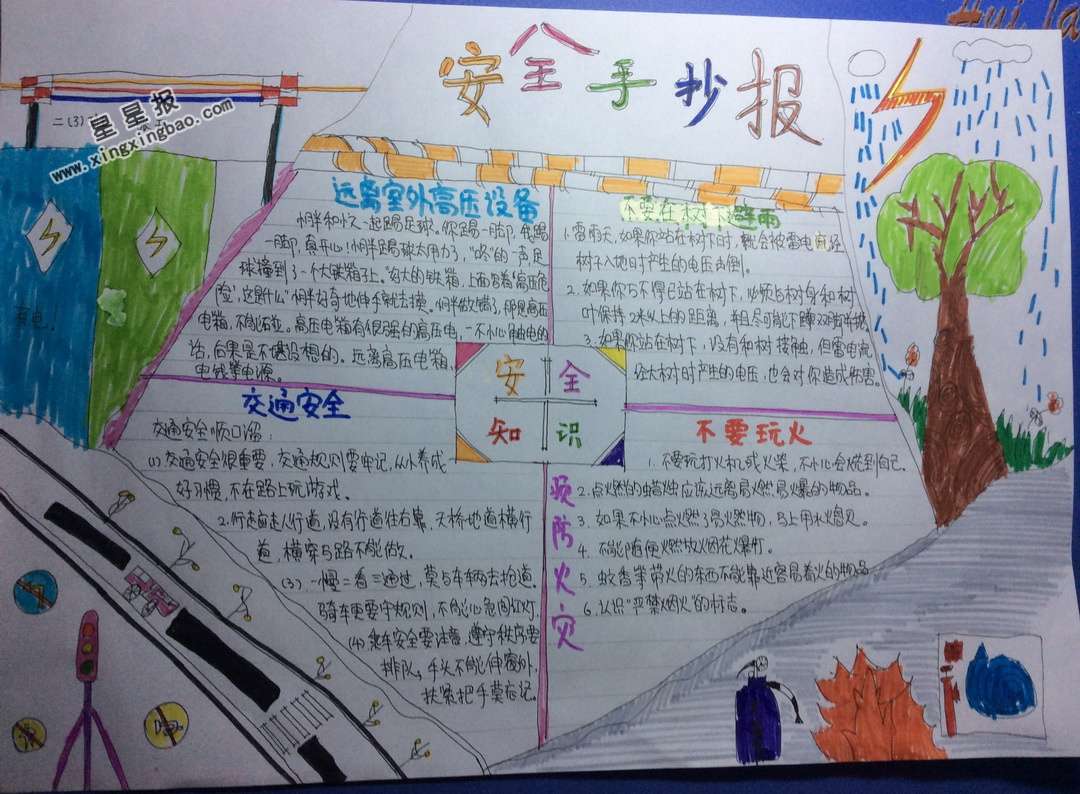 安全手抄报
星星报
www.xingxingbao.com
二(3)
有电.
远离室外高压设备
胖胖和忻文一起踢足球。你踢一脚,我踢
一脚,真开心!胖胖踢球太用力了,"咚"的一声足
球撞到了一个大铁箱子上。"好大的铁箱,上面写着'高压危
险',这是什么"胖胖好奇地伸手就去摸。胖胖做错了,那是高压
电箱,不能碰。高压电箱有很强的高压电,一不小心触电的
话,后果是不堪设想的。远离高压电箱,
电线等电源。
不要在树下避雨
1.雷雨天,如果你站在树下时,就会被雷电流经
树干入地时产生的电压击倒。
2.如果你万不得已站在树下,必须与树身和树
叶保持2米以上的距离,并且尽可能下蹲双脚并拢。
3.如果你站在树下,没有和树接触,但雷电流
经大树时产生的电压,也会对你造成伤害。
安全
知识
交通安全
交通安全顺口溜:
(1)交通安全很重要,交通规则要牢记,从小养成
好习惯,不在路上玩游戏。
2.行走应走人行道,没有行道往右靠,天桥地道横行
道,横穿马路不能做。
(3)一慢二看三通过,莫与车辆去抢道。
骑车更要守规则,不能心急闯红灯.
(4)乘车安全要注意,遵守秩序要
排队,手头不能伸窗外,
扶紧把手莫忘记。
预防火灾
不要玩火
1.不要玩打火机或火柴,不小心会烧到自己.
2.点燃的蜡烛应该远离易燃易爆的物品。
3.如果不小心点燃了易燃物,马上用水熄灭。
4.不能随便燃放烟花爆竹。
5.蚊香等带火的东西不能靠近容易着火的物品
6.认识"严禁烟火"的标志。